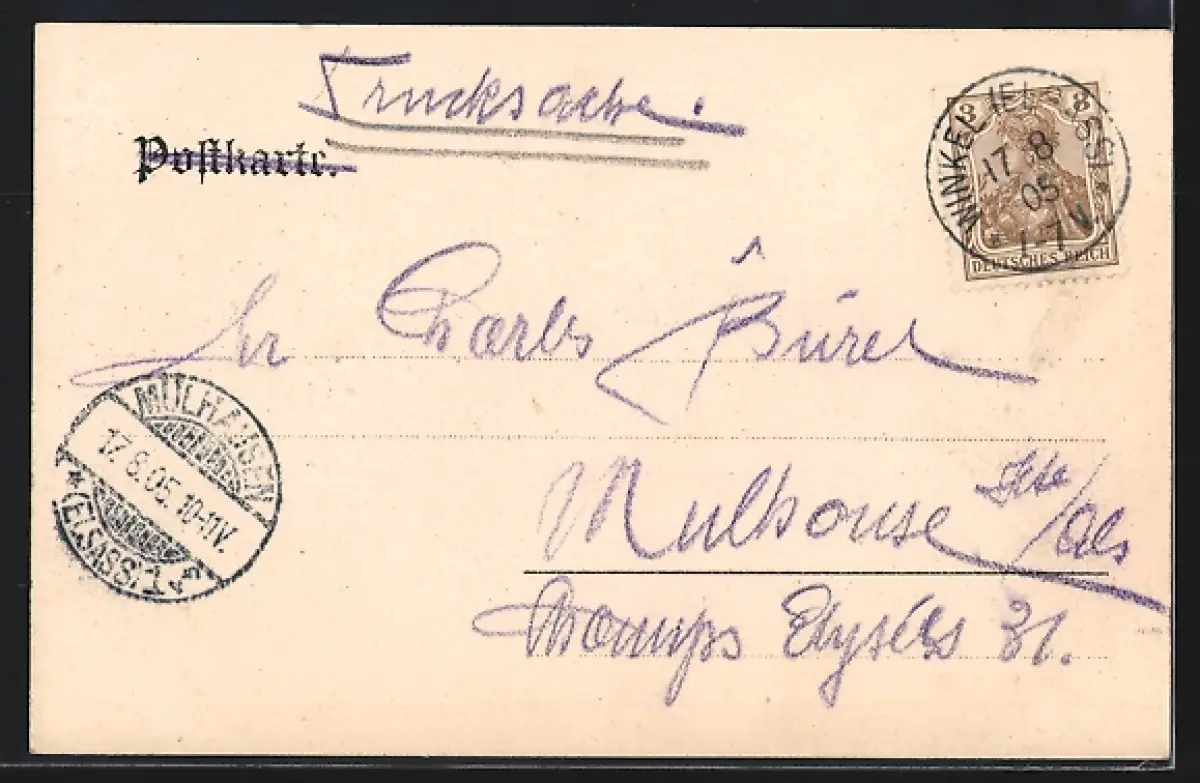 Drucksache.
Postkarte.
3 3
DEUTSCHES REICH
WINKEL (ELSASS)
17 8
05
* 7-7V *
Hr. Charles Bürel
MÜLHAUSEN
17.8.05. 10-11V.
* (ELSASS) 1 c
Mulhouse /Als
Champs Elysées 31.